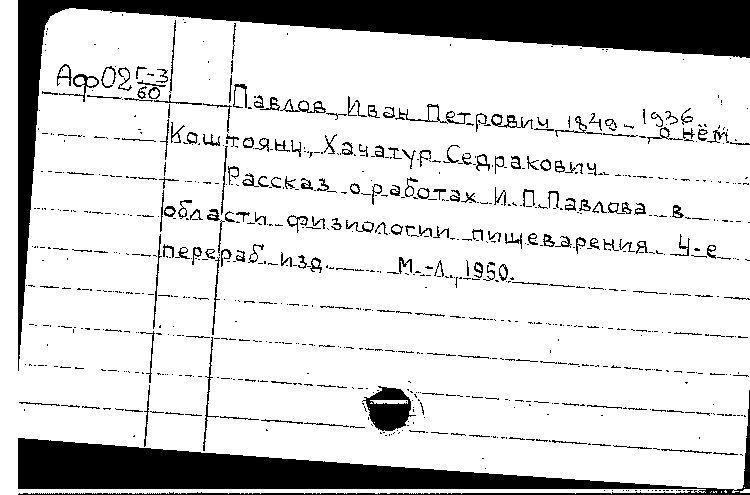 Аф02 Г-3/60
Павлов, Иван Петрович, 1849-1936, о нём.
Коштоянц, Хачатур Седракович.
Рассказ о работах И.П.Павлова в
области физиологии пищеварения. 4-е
перераб. изд. М.-Л., 1950.